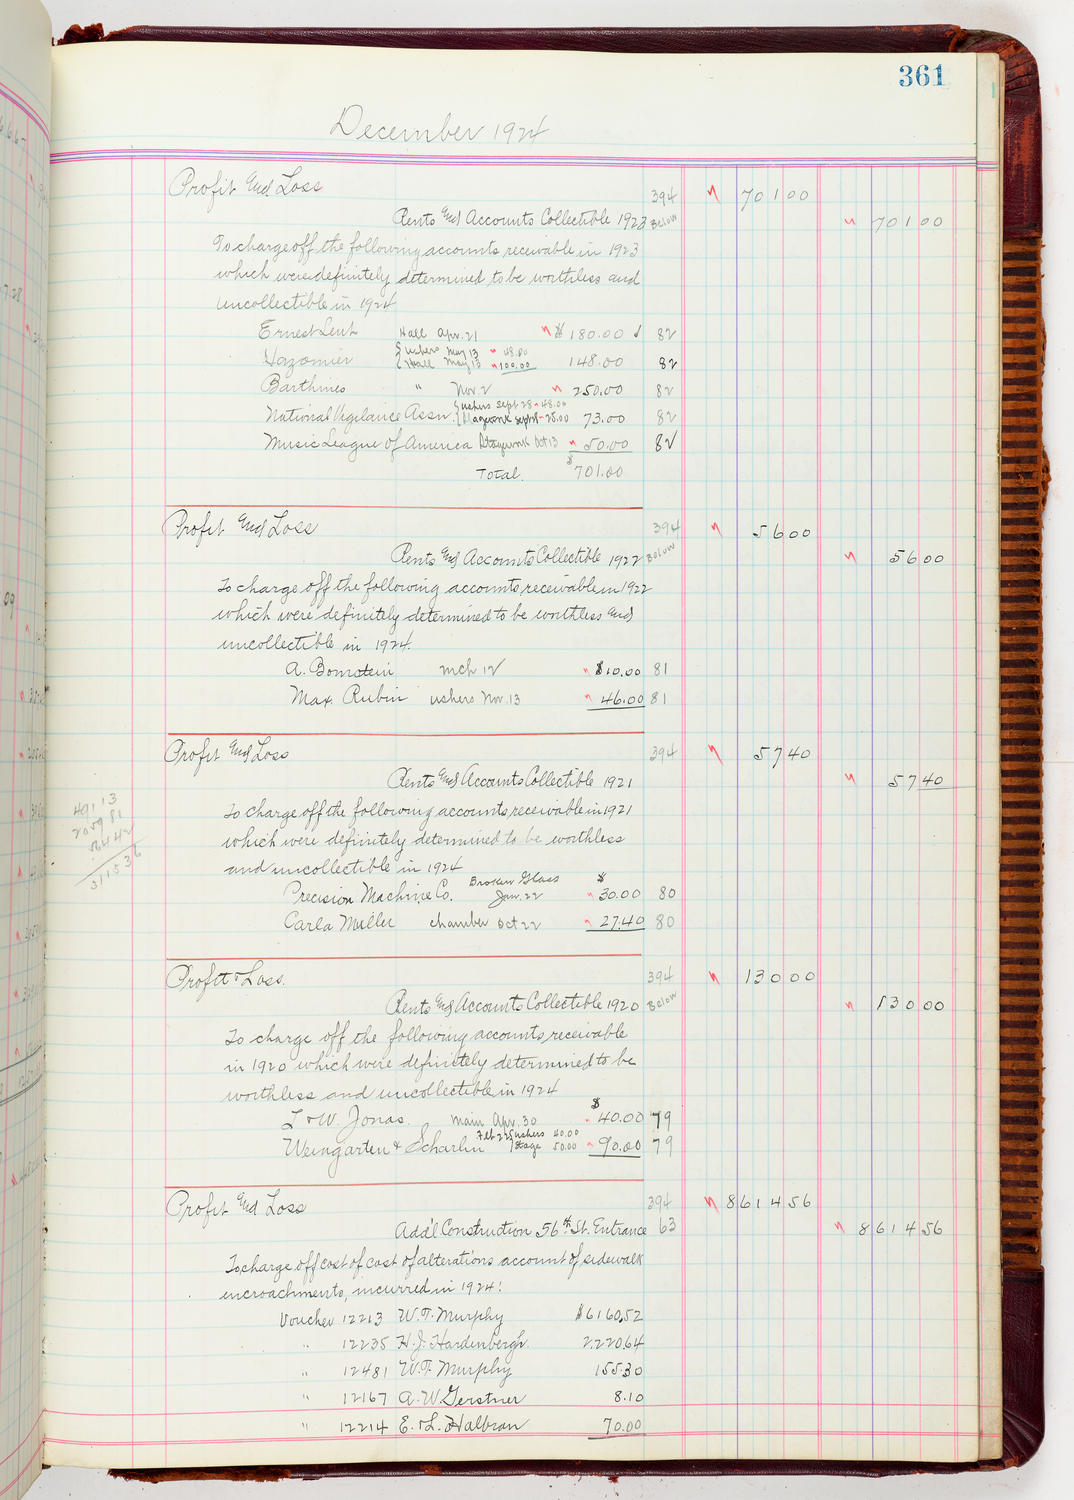 361
December 1924
Profit and Loss 394 70100
Rents and Accounts Collectible 1923 Below 70100
To charge off the following accounts receivable in 1923
which were definitely determined to be worthless and
uncollectible in 1924
Ernest Lent Hall Apr. 21 $180.00 82
Hazomir { ushers May 13 48.00
{ Hall May 13 100.00 148.00 82
Barthines " Nov. 2 250.00 82
National Vigilance Assn. { ushers Sept 28 48.00
25.00 73.00 82
Music League of America Stagework Oct 13 50.00 82
Total. $701.00
Profit and Loss 394 5600
Rents and Accounts Collectible 1922 Below 5600
To charge off the following accounts receivable in 1922
which were definitely determined to be worthless and
uncollectible in 1924.
A. Bornstein mch 12 $10.00 81
Max Rubin ushers Nov. 13 46.00 81
Profit and Loss 394 5740
Rents and Accounts Collectible 1921 5740
To charge off the following accounts receivable in 1921
which were definitely determined to be worthless
and uncollectible in 1924
Precision Machine Co. Broken Glass Jan. 22 $30.00 80
Carla Muller chamber Oct 22 27.40 80
49113
205981
56442
311536
Profit & Loss. 394 13000
Rents and Accounts Collectible 1920 Below 13000
To charge off the following accounts receivable
in 1920 which were definitely determined to be
worthless and uncollectible in 1924
L & W. Jonas. main Apr. 30 $40.00 79
Weingarten & Scharlin Feb 22 { ushers 40.00
{ Stage 50.00 90.00 79
Profit and Loss 394 861456
Add'l Construction 56th St. Entrance 63 861456
To charge off cost of cost of alterations account of sidewalk
encroachments, incurred in 1924:
Voucher 12213 W. T. Murphy $6160.52
" 12235 H. J. Hardenbergh. 2220.64
" 12481 W. T. Murphy 155.30
" 12167 A. W. Gerstner 8.10
" 12214 E. L. Halbran 70.00